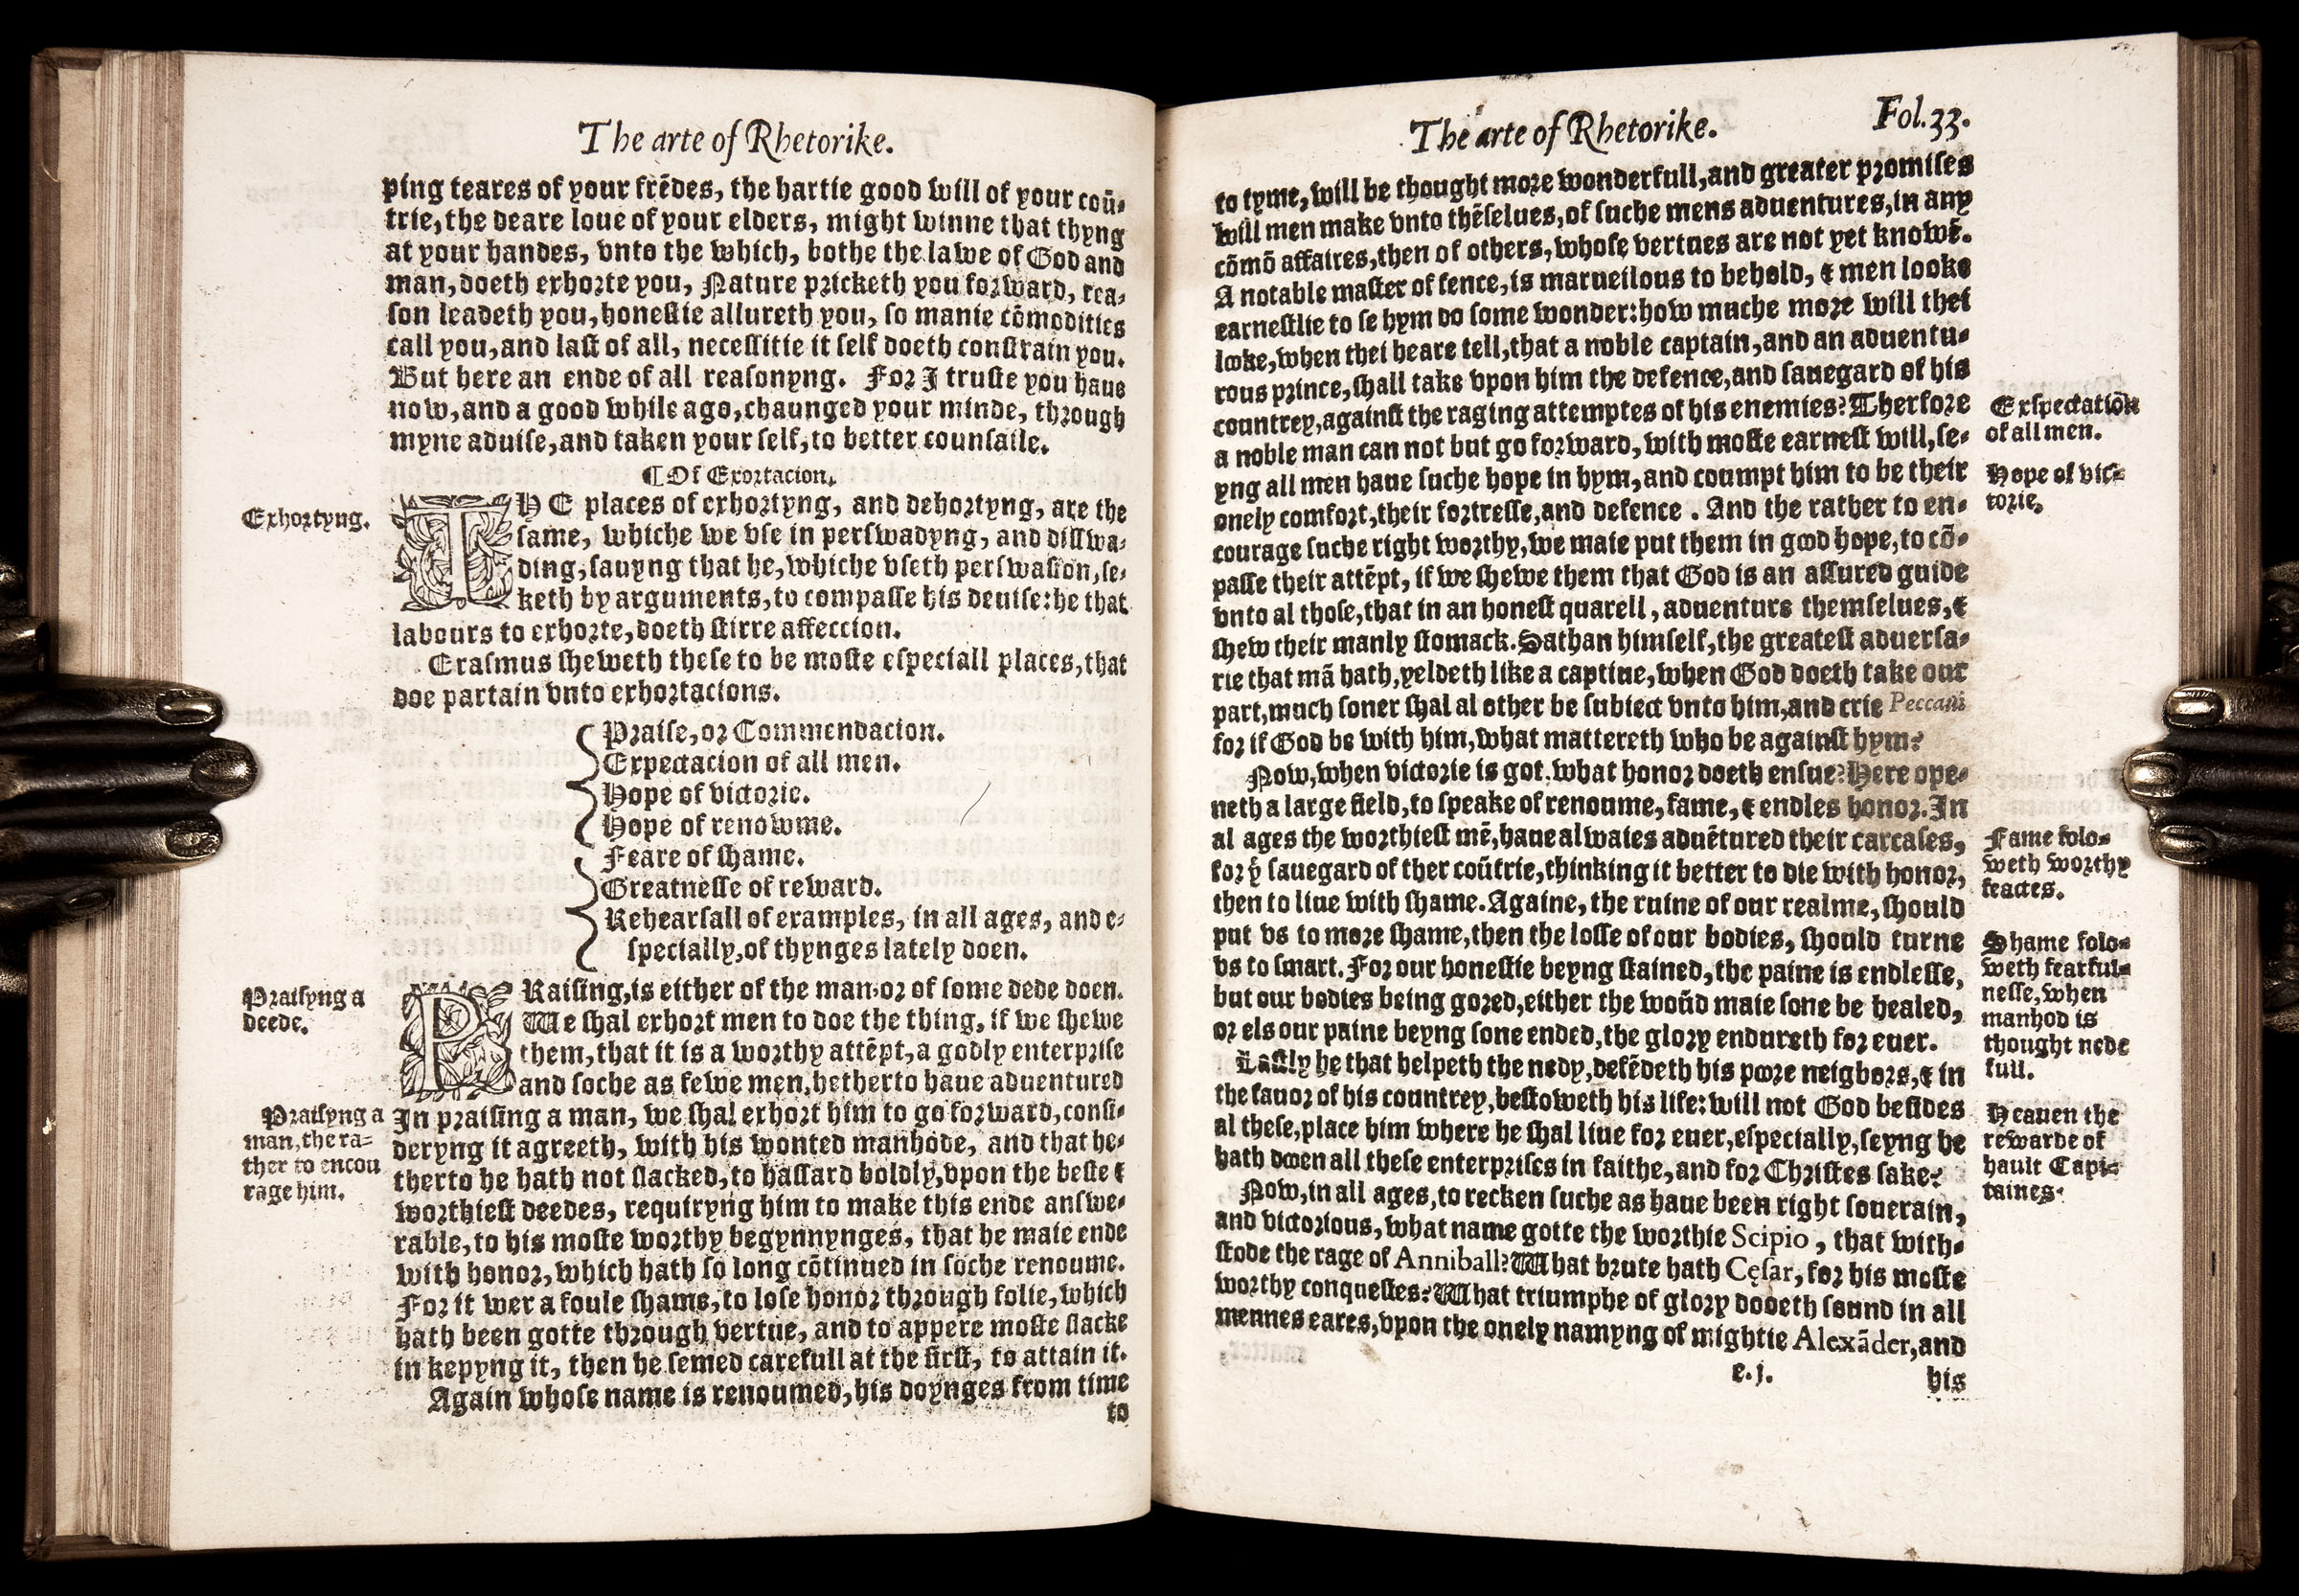 The arte of Rhetorike.
ping teares of your frēdes, the hartie good will of your coū-
trie, the deare loue of your elders, might winne that thyng
at your handes, vnto the which, bothe the lawe of God and
man, doeth exhorte you, Nature pricketh you forward, rea-
son leadeth you, honestie allureth you, so manie cōmodities
call you, and last of all, necessitie it self doeth constrain you.
But here an ende of all reasonyng. For I truste you haue
now, and a good while ago, chaunged your minde, through
myne aduise, and taken your self, to better counsaile.
¶Of Exortacion.
Exhortyng.
THE places of exhortyng, and dehortyng, are the
same, whiche we vse in perswadyng, and disswa-
ding, sauyng that he, whiche vseth perswasion, se-
keth by arguments, to compasse his deuise: he that
labours to exhorte, doeth stirre affeccion.
Erasmus sheweth these to be moste especiall places, that
doe partain vnto exhortacions.
Praise, or Commendacion.
Expectacion of all men.
Hope of victorie.
Hope of renowme.
Feare of shame.
Greatnesse of reward.
Rehearsall of examples, in all ages, and e-
specially, of thynges lately doen.
Praisyng a
deede.
PRaising, is either of the man, or of some dede doen.
We shal exhort men to doe the thing, if we shewe
them, that it is a worthy attēpt, a godly enterprise
and soche as fewe men, hetherto haue aduentured
Praisyng a
man, the ra-
ther to encou
rage him.
In praising a man, we shal exhort him to go forward, consi-
deryng it agreeth, with his wonted manhode, and that he-
therto he hath not slacked, to hassard boldly, vpon the beste &
worthiest deedes, requiryng him to make this ende answe-
rable, to his moste worthy begynnynges, that he maie ende
with honor, which hath so long cōtinued in soche renoume.
For it wer a foule shame, to lose honor through folie, which
hath been gotte through vertue, and to appere moste slacke
in kepyng it, then he semed carefull at the first, to attain it.
Again whose name is renoumed, his doynges from time
to
The arte of Rhetorike.
Fol.33.
to tyme, will be thought more wonderfull, and greater promises
will men make vnto thēselues, of suche mens aduentures, in any
cōmō affaires, then of others, whose vertues are not yet knowē.
A notable master of fence, is marueilous to behold, & men looke
earnestlie to se hym do some wonder: how muche more will thei
looke, when thei heare tell, that a noble captain, and an aduentu-
rous prince, shall take vpon him the defence, and sauegard of his
countrey, against the raging attemptes of his enemies? Therfore
a noble man can not but go forward, with moste earnest will, se-
yng all men haue suche hope in hym, and coumpt him to be their
onely comfort, their fortresse, and defence. And the rather to en-
courage suche right worthy, we maie put them in good hope, to cō-
passe their attēpt, if we shewe them that God is an assured guide
vnto al those, that in an honest quarell, aduenture themselues, &
shew their manly stomack. Sathan himself, the greatest aduersa-
rie that mā hath, yeldeth like a captiue, when God doeth take our
part, much soner shal al other be subiect vnto him, and crie Peccaui
for if God be with him, what mattereth who be against hym?
Expectatiō
of all men.
Hope of vic-
torie.
Now, when victorie is got, what honor doeth ensue? Here ope-
neth a large field, to speake of renoume, fame, & endles honor. In
al ages the worthiest mē, haue alwaies aduētured their carcases,
for yͤ sauegard of ther coūtrie, thinking it better to die with honor,
then to liue with shame. Againe, the ruine of our realme, should
put vs to more shame, then the losse of our bodies, should turne
vs to smart. For our honestie beyng stained, the paine is endlesse,
but our bodies being gored, either the woūd maie sone be healed,
or els our paine beyng sone ended, the glory endureth for euer.
Fame folo-
weth worthy
feactes.
Shame folo-
weth fearful-
nesse, when
manhod is
thought nede
full.
Lastly he that helpeth the nedy, defēdeth his poore neigbors, & in
the fauor of his countrey, bestoweth his life: will not God besides
al these, place him where he shal liue for euer, especially, seyng he
hath doen all these enterprises in faithe, and for Christes sake?
Heauen the
rewarde of
hault Capi-
taines.
Now, in all ages, to recken suche as haue been right souerain,
and victorious, what name gotte the worthie Scipio, that with-
stode the rage of Anniball? What brute hath Cęsar, for his moste
worthy conquestes? What triumphe of glory dooeth sound in all
mennes eares, vpon the onely namyng of mightie Alexāder, and
e.j.
his